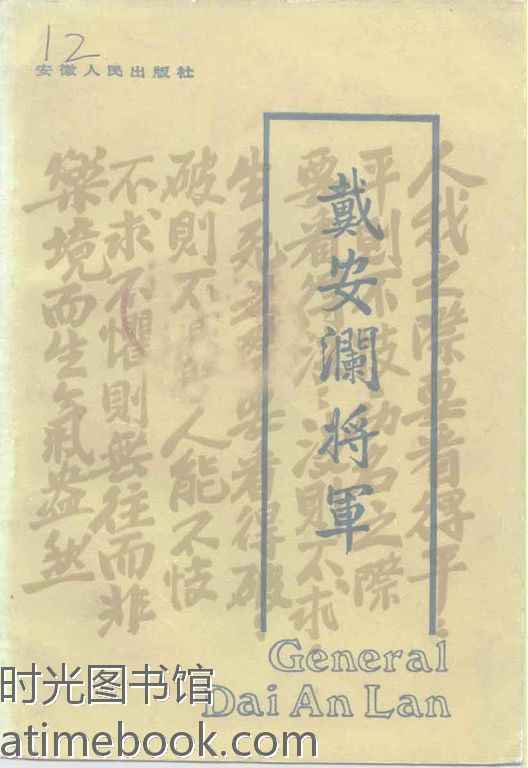 12
安徽人民出版社
戴安瀾将軍
人我之際要看得平：
平則不忮功名之際
要看得淡：淡則不求：
生死之際要看得破：
破則不懼人能不忮
不求不懼則無往而非
樂境而生氣盎然
General
Dai An Lan
时光图书馆
atimebook.com